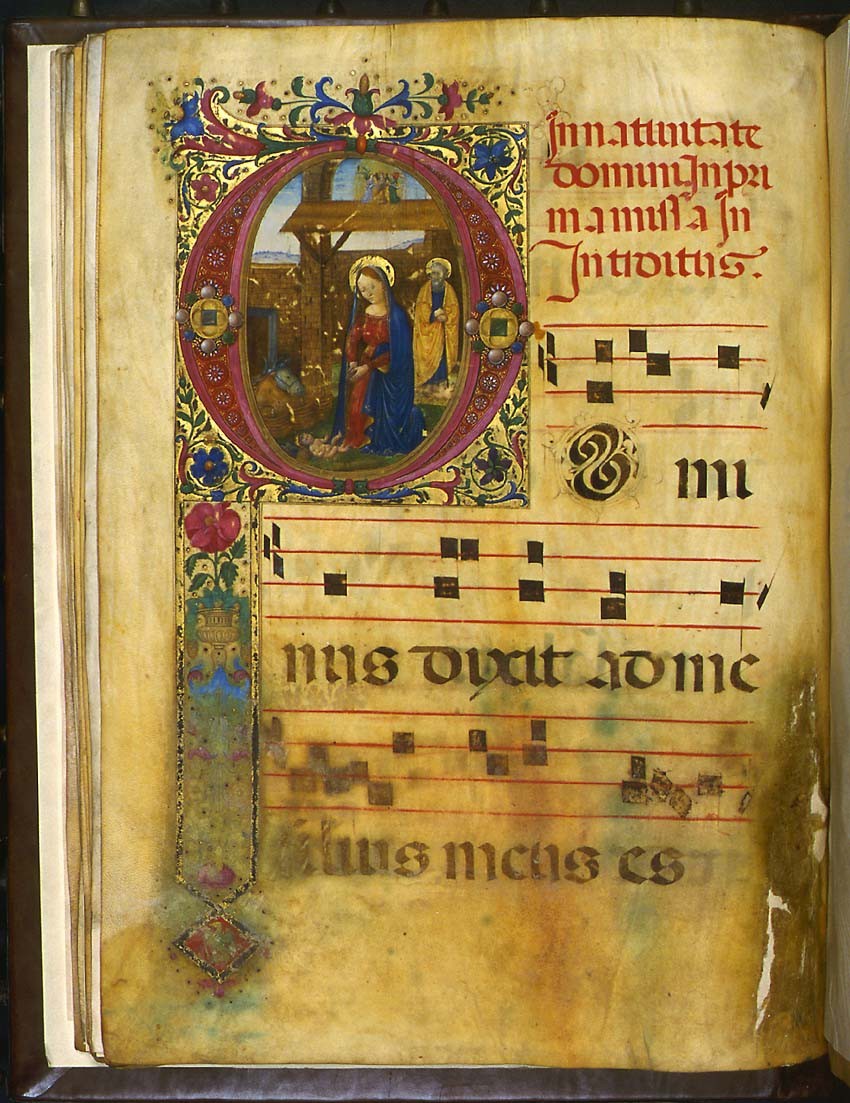 In natiuitate
domini In pri
ma missa In
Introitus.
DO mi
nus dixit ad me
filius meus es